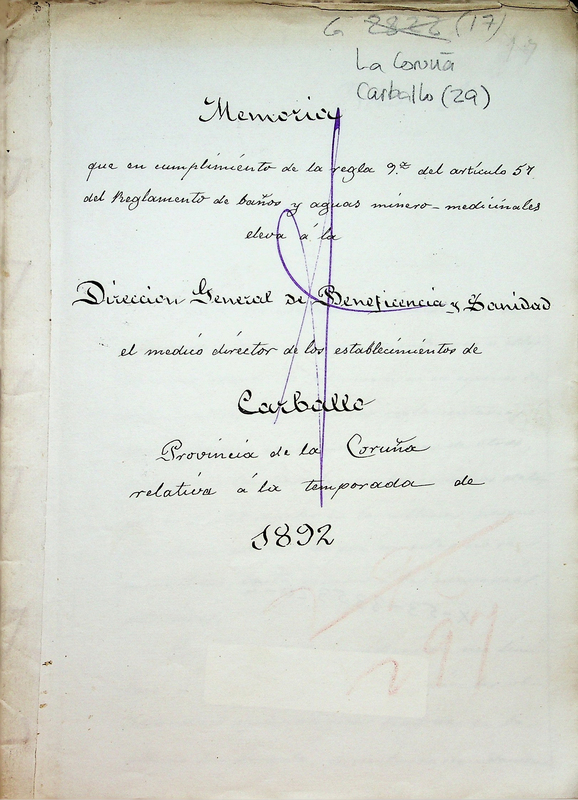 G 2826 (17)
La Coruña
Carballo (29)
Memoria
que en cumplimiento de la regla 9.ª del artículo 57
del Reglamento de baños y aguas minero-medicinales
eleva á la
Direccion General de Beneficencia y Sanidad
el medico director de los establecimientos de
Carballo
Provincia de la Coruña
relativa á la temporada de
1892